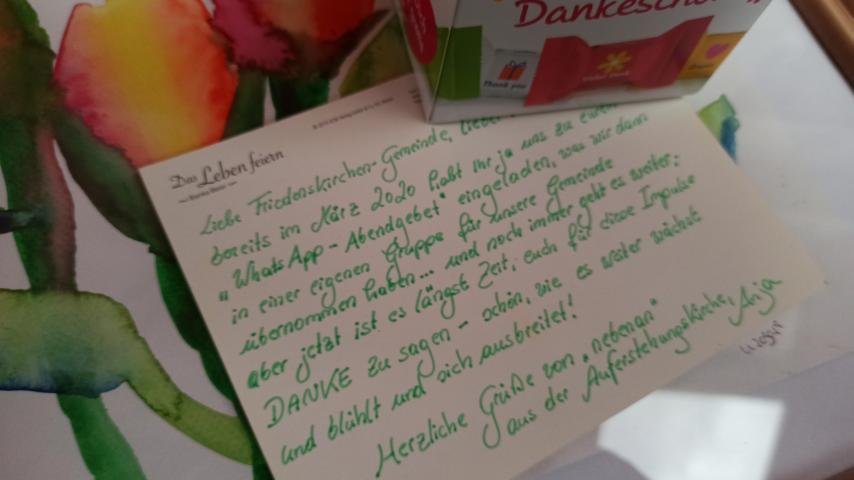 Dankeschö
Thank you
Das Leben feiern
Liebe Friedenskirchen-Gemeinde, lieber
bereits im März 2020 habt Ihr ja uns zu eurem
"WhatsApp-Abendgebet" eingeladen, was wir dann
in einer eigenen Gruppe für unsere Gemeinde
übernommen haben... und noch immer geht es weiter:
aber jetzt ist es längst Zeit, euch für diese Impulse
DANKE zu sagen - schön, wie es weiter wächst
und blühlt und sich ausbreitet!
Herzliche Grüße von "nebenan"
aus der Auferstehungskirche, Anja